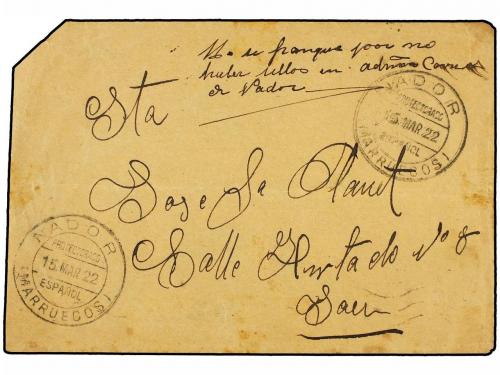 No se franquea por no
haber sellos en admón Correos
de Nador
NADOR
PROTECTORADO
15 MAR 22
ESPAÑOL
(MARRUECOS)
Sta
Calle Hurtado nº 8
Jaen
NADOR
PROTECTORADO
15 MAR 22
ESPAÑOL
(MARRUECOS)